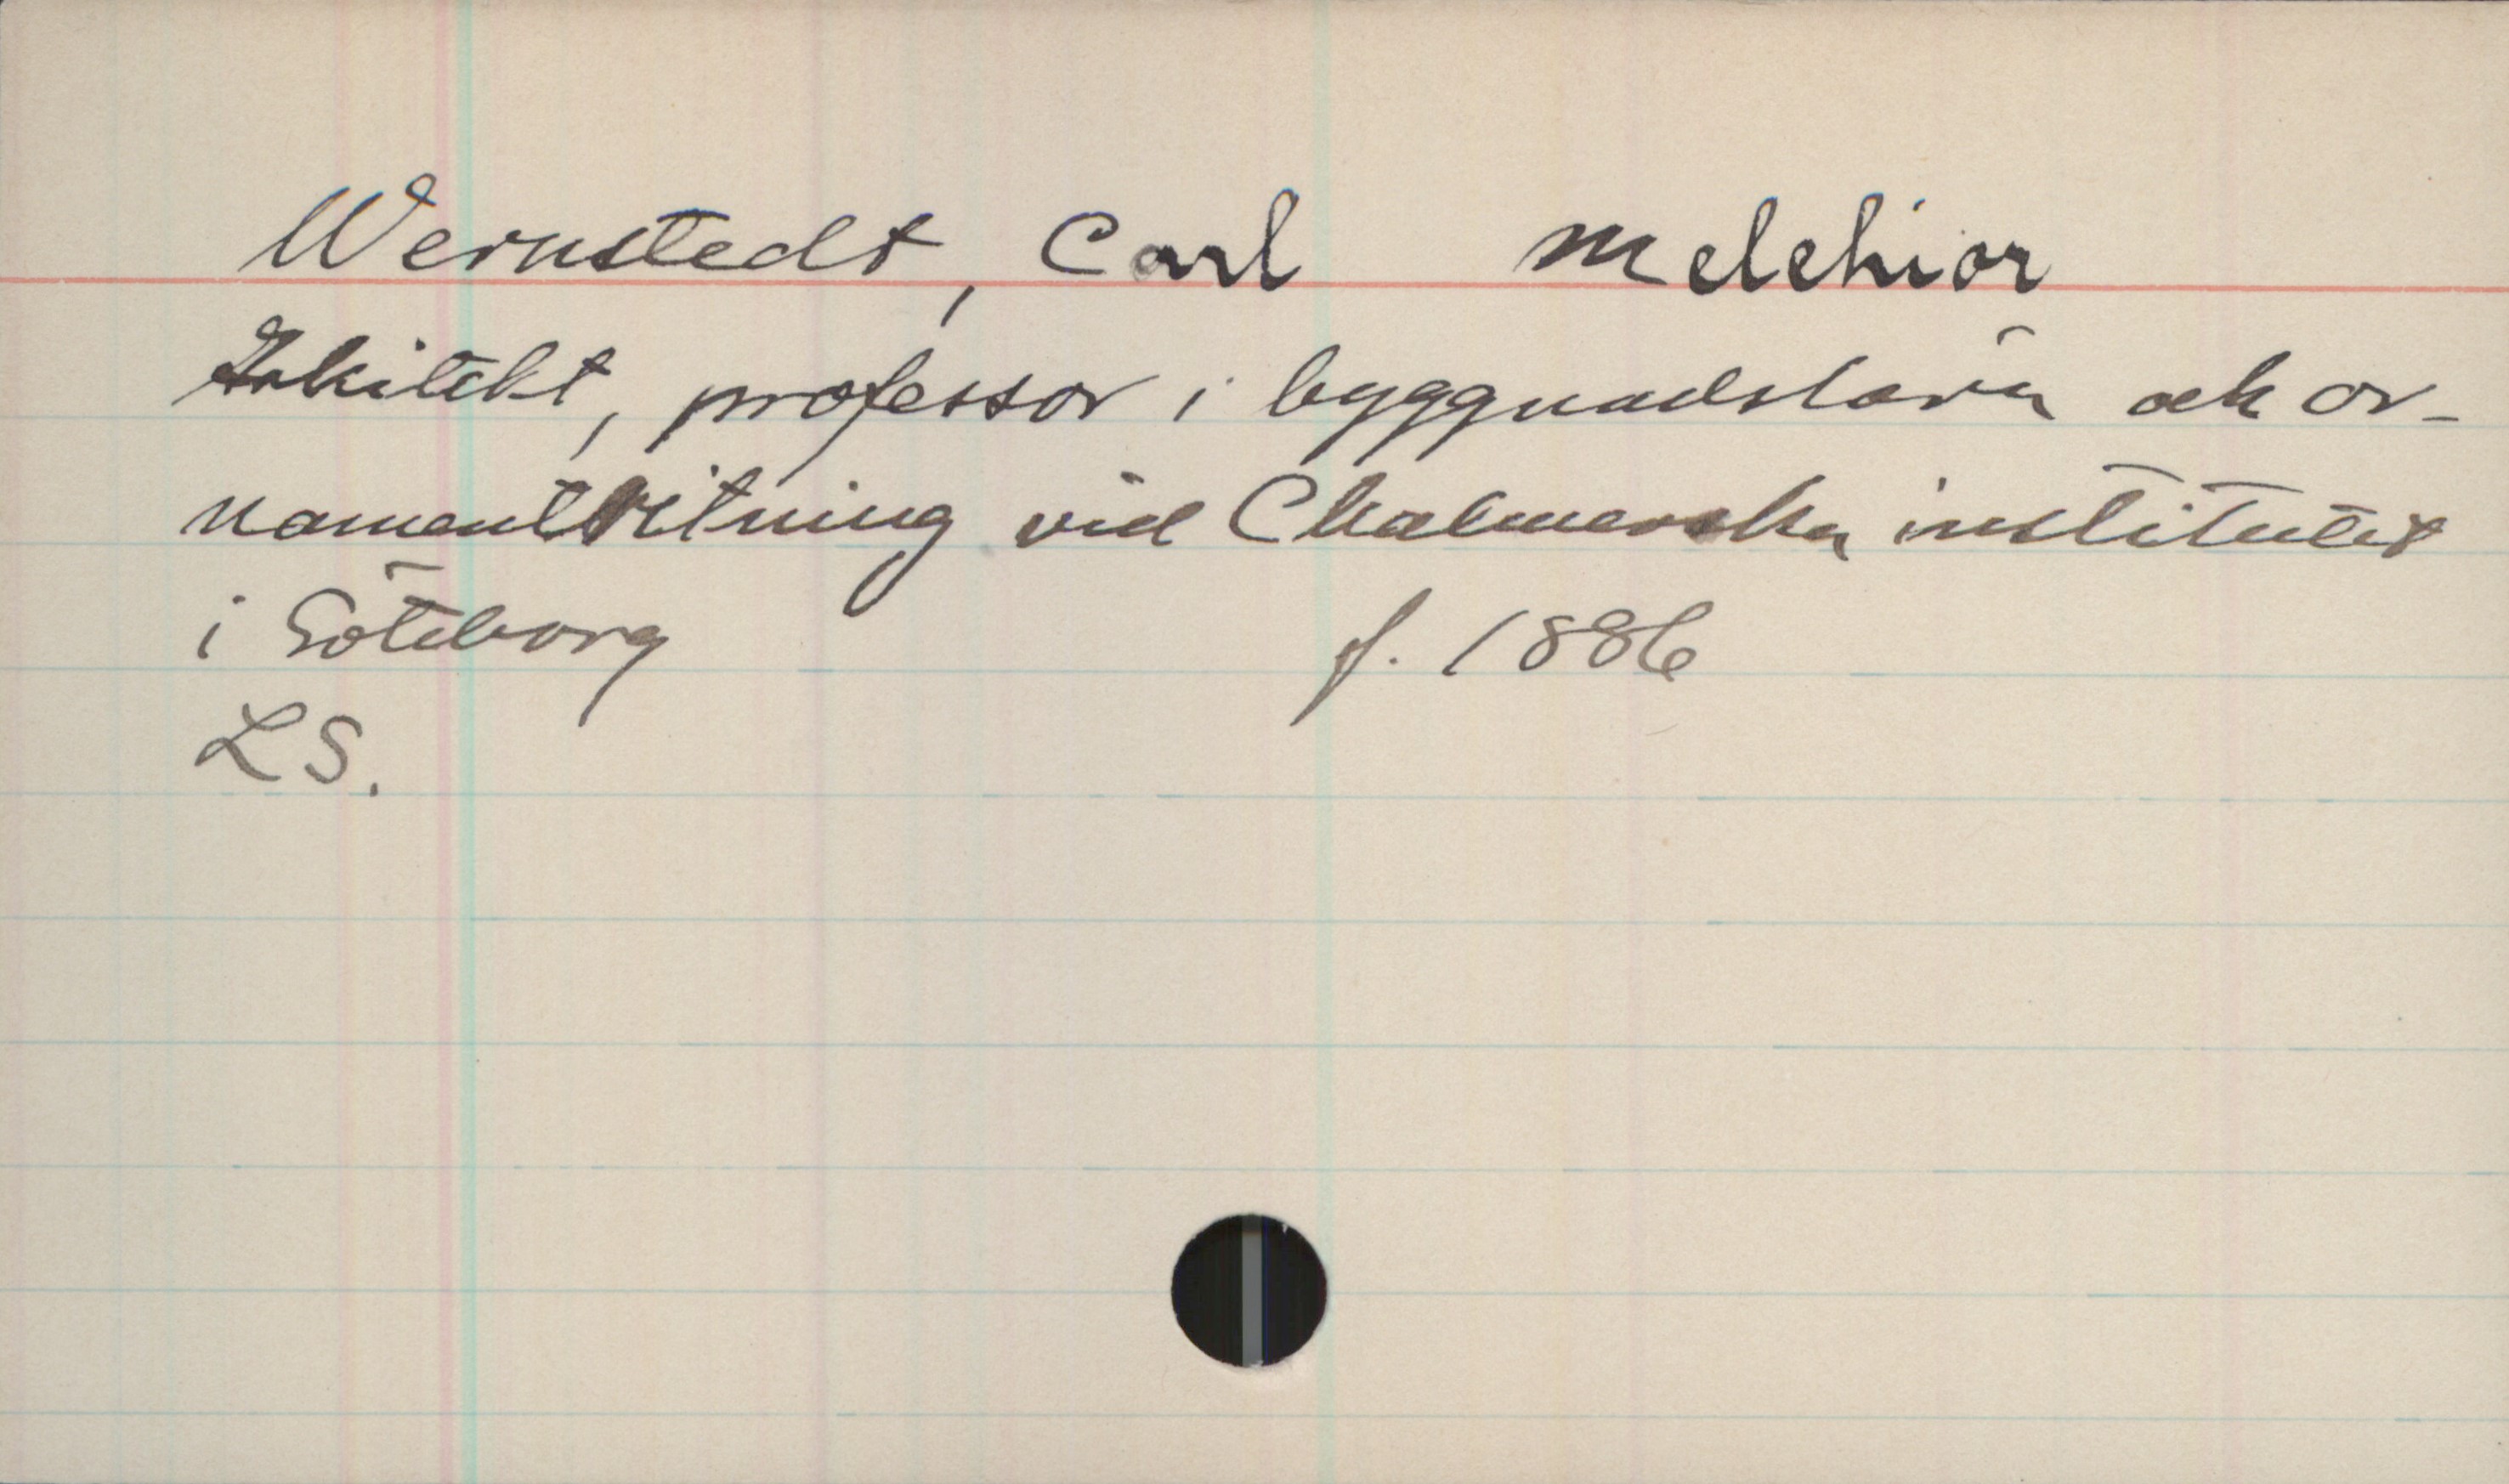 Wernstedt, Carl Melchior
Arkitekt, professor i byggnadslära och or-
namentritning vid Chalmerska institutet
i Göteborg f. 1886
LS.